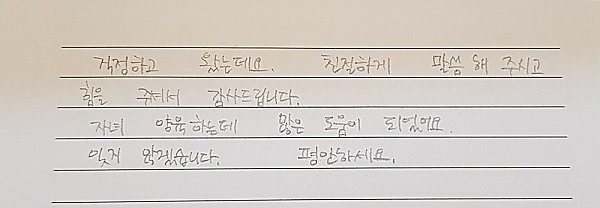 걱정하고 왔는데요. 친절하게 말씀 해 주시고
힘을 주셔서 감사드립니다.
자녀 양육하는데 많은 도움이 되었어요.
잊지 않겠습니다. 평안하세요.